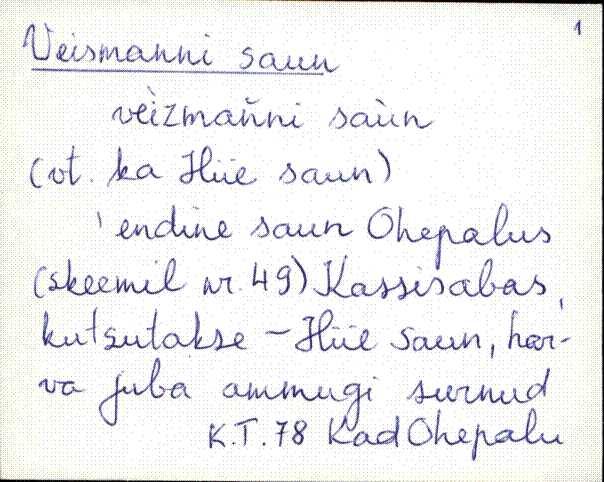 1
Veismanni saun
vèizmańni saùn
(vt. ka Hiie saun)
'endine saun Ohepalus
(skeemil nr. 49) Kassisabas,
kutsutakse – Hiie saun, har-
va juba ammugi surnud
K.T. 78 Kad Ohepalu